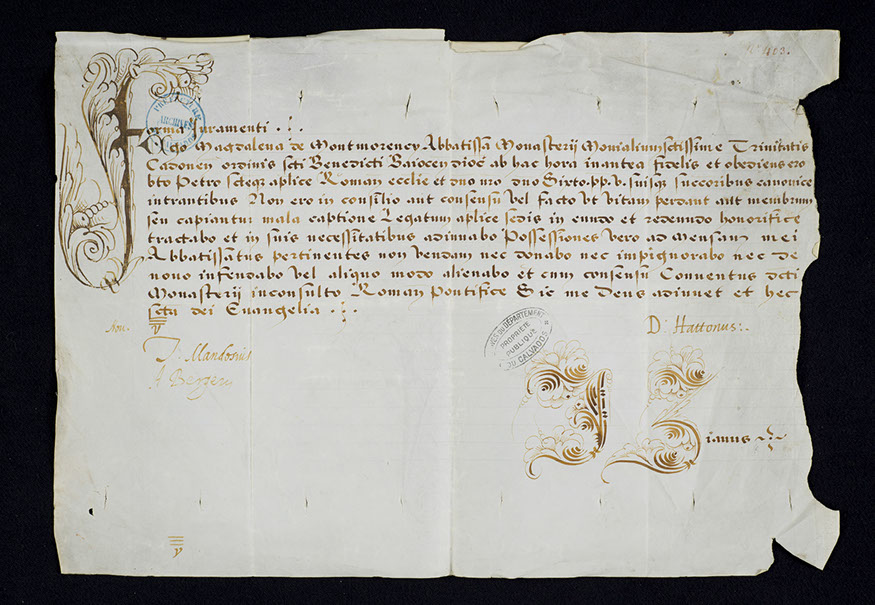 N° 403.
Forma Juramenti .
Ego Magdalena de Montmorency Abbatissa Monasterij Monialium sctissime Trinitatis
Cadomen ordinis scti Benedicti Baiocen dioc ab hac hora inantea fidelis et obediens ero
bto Petro scteqz aplice Roman ecclie et dno nro dno Sixto . pp . v . suisqz succoribus canonice
intrantibus Non ero in consilio aut consensu vel facto vt vitam perdant aut membrum
seu capiantur mala captione Legatum aplice sedis in eundo et redeundo honorifice
tractabo et in suis necessitatibus adiuuabo Possessiones vero ad Mensam mei
Abbatissatus pertinentes non vendam nec donabo nec impignorabo nec de
nouo infeudabo vel aliquo modo alienabo et cum consensu Conuentus dcti
Monasterij inconsulto Roman Pontifice Sic me Deus adiuuet et hec
scta dei Euangelia .
v
D. Hattonus
J. Mandosius
A
ARCHIVES DU DÉPARTEMENT
PROPRIÉTÉ
PUBLIQUE
DU CALVADOS
ARCHIVES
ianus
v